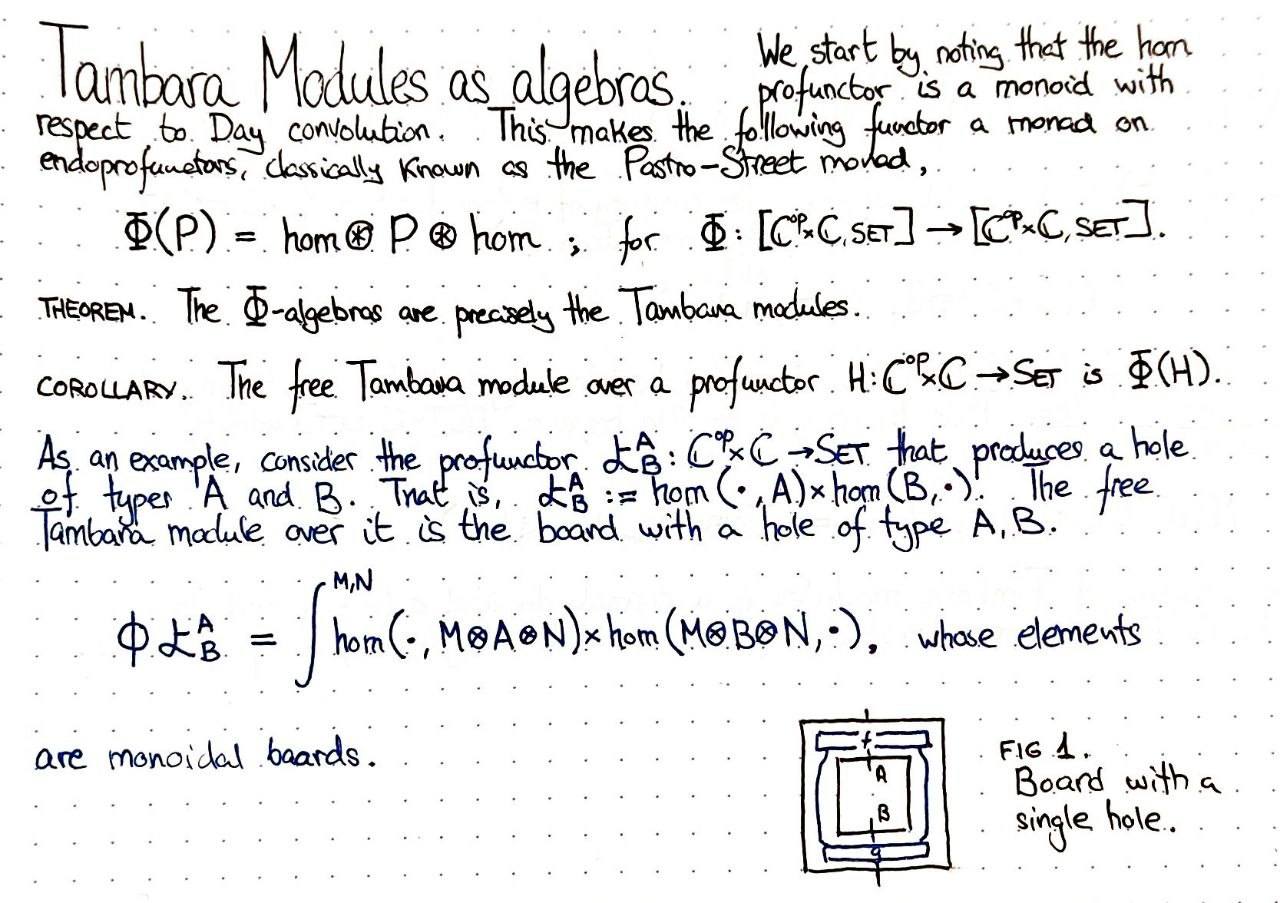 Tambara Modules as algebras. We start by noting that the hom
profunctor is a monoid with
respect to Day convolution. This makes the following functor a monad on
endoprofunctors, classically known as the Pastro-Street monad,
Φ(P) = hom ⊛ P ⊛ hom ; for Φ: [ℂᵒᵖ×ℂ, SET] → [ℂᵒᵖ×ℂ, SET].
THEOREM. The Φ-algebras are precisely the Tambara modules.
COROLLARY. The free Tambara module over a profunctor H: ℂᵒᵖ×ℂ → SET is Φ(H).
As an example, consider the profunctor よ^A_B: ℂᵒᵖ×ℂ → SET that produces a hole
of types A and B. That is, よ^A_B := hom(·, A) × hom(B, ·). The free
Tambara module over it is the board with a hole of type A, B.
Φよ^A_B = ∫^{M,N} hom(·, M⊗A⊗N) × hom(M⊗B⊗N, ·), whose elements
are monoidal boards.
f
A
B
g
FIG 1.
Board with a
single hole.